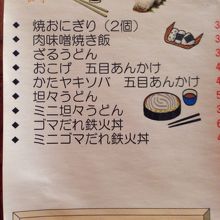 焼おにぎり（2個）
肉味噌焼き飯
ざるうどん
おこげ　五目あんかけ
かたヤキソバ　五目あんかけ
坦々うどん
ミニ坦々うどん
ゴマだれ鉄火丼
ミニゴマだれ鉄火丼